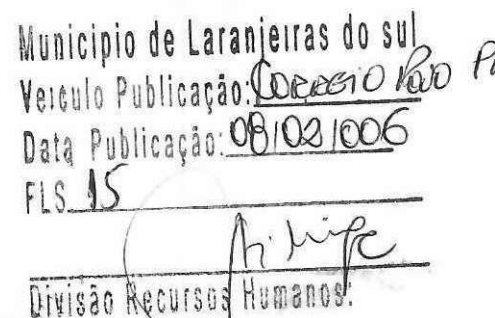 Municipio de Laranjeiras do sul
Veiculo Publicação: CORREIO POVO
Data Publicação: 08/02/006
FLS. 15
Divisão Recursos Humanos.